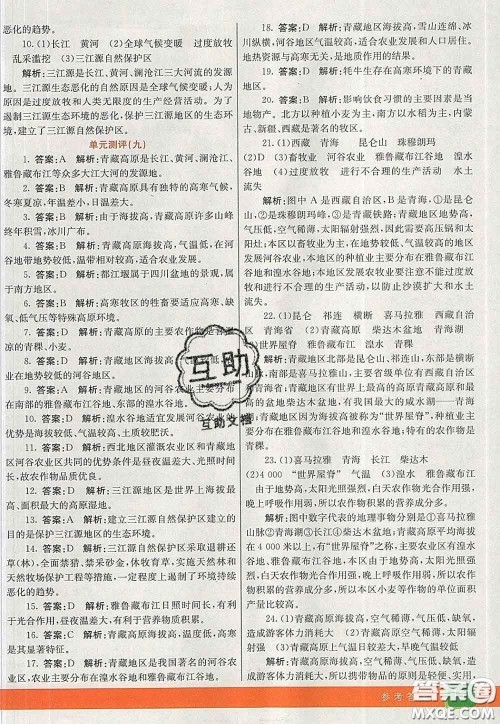 恶化的趋势。
10.(1)长江 黄河 (2)全球气候变暖 过度放牧
乱采滥挖 (3)三江源自然保护区
解析:三江源是长江、黄河、澜沧江三大河流的发源
地。三江源生态恶化的自然原因是全球气候变暖,人为
原因是过度放牧和人类无限度的生产经营活动。为了
遏制生态环境的恶化,保护三江源地区的生态环境,建
立了三江源自然保护区。
单元测评(九)
1. 答案:A 解析:青藏高原是长江、黄河、澜沧江、
雅鲁藏布江等众多大江大河的发源地。
2. 答案:B 解析:青藏高原具有独特的高寒气候,
冬寒夏凉,年温差小,日温差大。
3. 答案:D 解析:由于海拔高,青藏高原许多山峰
终年积雪,冰川广布。
4. 答案:C 解析:青藏高原海拔高,气温低,在河
谷地带地势较低,温带相对较高,适合农业发展。
5. 答案:D 解析:都江堰属于四川盆地的景观,属
于南方地区。
6. 答案:B 解析:高寒牧区的牲畜要适应高原缺
氧、低气压、低气温等特殊高原环境。
7. 答案:D 解析:青藏高原的主要农作物
凉的青稞、小麦。
8. 答案:A 解析:青藏地区的农业主要分布在海
拔较低、气温较高的河谷地区。
9. 答案:D 解析:青藏地区的河谷农业主要分布
在南部的雅鲁藏布江谷地、东部的湟水谷地。
10. 答案:D 解析:湟水谷地适宜发展河谷农业的
条件是海拔较低、气温较高、土壤较肥沃。
11. 答案:D 解析:西北地区灌溉农业区和青藏地
区河谷农业区共同的优势条件是昼夜温差大,光照时间
长,故农作物品质优良。
12. 答案:D 解析:三江源地区是世界上海拔最
高、面积最大的高原湿地。
13. 答案:C 解析:建立三江源自然保护区的目的
是保护三江源地区的生态环境。
14. 答案:D 解析:三江源自然保护区采取退耕还
草(林)、生态移民工程、封山育林、草场围栏、实施休牧和
天然牧场保护工程等措施,一定程度上遏制了环境持续
恶化的趋势。
15. 答案:D 解析:雅鲁藏布江日照时间长,有利
于光合作用,昼夜温差大,有利于营养物质积累。
16. 答案:D 解析:青藏高原海拔高,温度低,高寒
是其显著特征。
17. 答案:D 解析:青藏地区是我国著名的河谷农
业区,农业主要分布在雅鲁藏布江谷地和湟水谷地。
18. 答案:D 解析:青藏地区海拔高,雪山连绵、冰
川纵横,河谷地区气温较高,适合农业发展和人口居住。
由此可见,地势与高寒是影响青藏地区自然环境与人类
活动的最大因素。
19. 答案:D 解析:牦牛生存在高寒环境下的青藏
地区。
20. 答案:B 解析:影响饮食习惯的主要因素是气
候和地形,糌粑分布在青藏地区,手抓羊肉主要分布在内
蒙古、新疆、西藏等地区。
21.(1)西藏 青海 (2)昆仑山 珠穆朗玛
(2)D (3)畜牧业 河谷农业 雅鲁藏布江谷地 湟水
谷地 (4)过度放牧 进行不合理的生产活动 太阳能
解析:图中A是西藏自治区,B是青海省,①是昆仑
山,②是珠穆朗玛峰,③是青藏铁路;青藏地区地势高,空
气稀薄,太阳辐射强烈,因此需要采用高压锅和
太阳灶;本区以畜牧业为主,由于河谷地区气候条件较
好,因此本地区的种植业主要分布在雅鲁藏布江谷地和
湟水谷地,农作物主要有小麦和青稞;本地区由于过度放
牧及进行不合理的生产活动,所以出现了土地沙漠化,可
以通过开发利用太阳能来满足人们生活需要,以防止
沙漠化扩大。
22.(1)昆仑 祁连 横断 喜马拉雅 西藏自治
区 青海省 (2)青藏高原 柴达木盆地 青海湖
(3)畜牧业 小麦 青稞
解析:青藏地区北部是昆仑山、祁连山,东部是横断
山,南部是喜马拉雅山;主要省级单位有西藏自治区和
青海省;本区有世界上海拔最高的青藏高原和我国海拔
最高的盆地柴达木盆地,有我国最大的咸水湖——青海
湖,有“世界屋脊”之称;畜牧业以高原畜牧业为主,种植业主
要分布在雅鲁藏布江谷地和湟水谷地,主要农作物为小
麦和青稞。
23.(1)喜马拉雅 青海 长江 柴达木
(2)4 000 “世界屋脊” 气温 (3)湟水 雅鲁藏布江
(4)海拔高,空气稀薄,太阳光照强,农作物光合作用
强,晚上呼吸作用弱,农作物积累的营养成分多。
解析:图中数字代表的地理事物分别是①喜马拉雅
山脉②青海湖③长江④柴达木盆地。青藏高原海拔平均
在4 000米以上,有“世界屋脊”之称。本区主要有农业有
河谷农业,主要分布在雅鲁藏布江谷地和湟水谷地。本
区白天太阳光照强,农作物光合作用强;晚上温度低,农作物
晚上呼吸作用弱,所以本地区小麦与其他地区相比,农
作物积累的营养成分多。
24.(1)青藏高原海拔高,空气稀薄,气压低,缺氧,
造成游客体力消耗大 (2)青藏高原空气稀薄,太阳辐
射强烈 (3)低温寒冷
解析:青藏高原海拔高,空气稀薄,气压低,缺氧,造
成游客体力消耗大,所以携带物品的原则是轻便、有营
参考答
互助
互助文档
答案圈